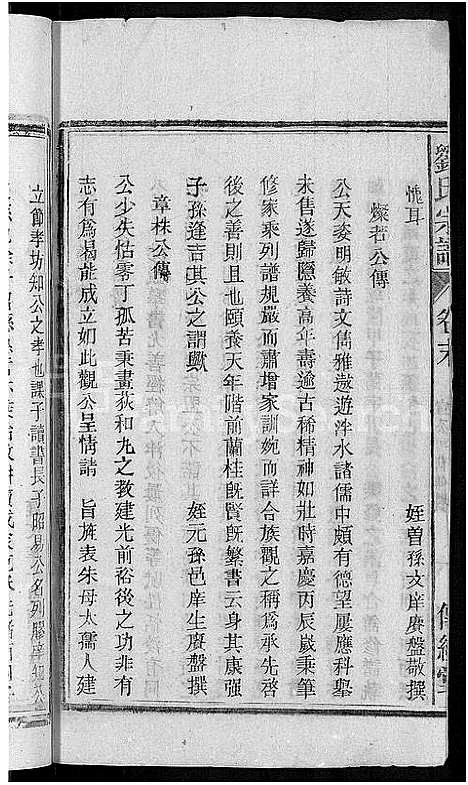 劉氏宗譜 卷末
愧耳
姪曾孫文庠賡盤敬撰
燦若公傳
公天姿明敏詩文儁雅遨遊泮水諸儒中頗有德望屢應科舉
未售遂歸隱養高年壽逾古稀精神如壯時嘉慶丙辰歲秉筆
修家乘列譜規嚴而肅增家訓婉而詳合族觀之稱為承先啓
後之善則且也頤養天年階前蘭桂旣賢旣繁書云身其康强
子孫逢吉其公之謂歟
姪元孫邑庠生賡盤撰
章株公傳
公少失怙零丁孤苦秉畫荻和丸之教建光前裕後之功非有
志有為曷能成立如此觀公呈情請 旨旌表朱母太孺人建
立節孝坊知公之孝也課子讀書長子昭易公名列膠庠